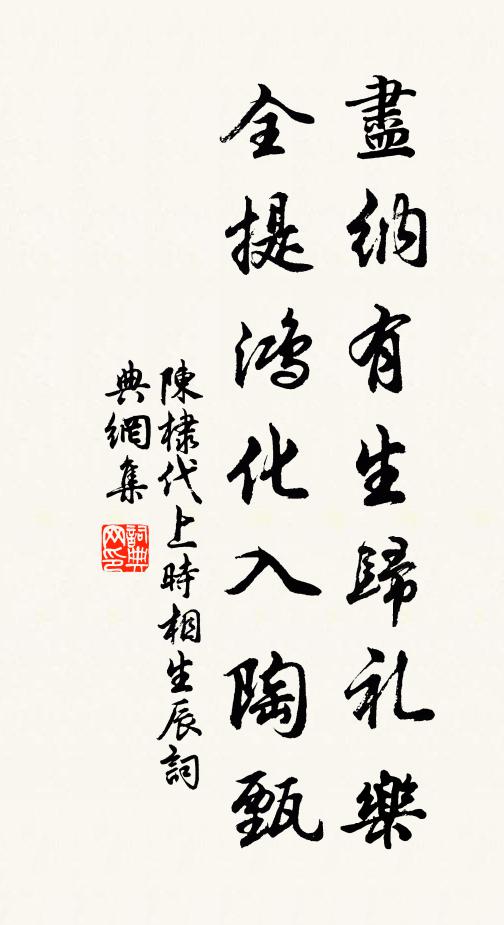 盡納有生歸礼樂
全提鴻化入陶甄
陳棣代上時相生辰詞
典網集
詞典網印